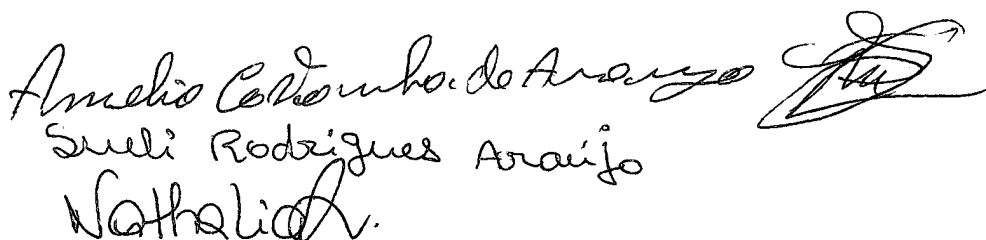 Amelio Castanho de Araujo
Sueli Rodrigues Araújo
Nathalia R.